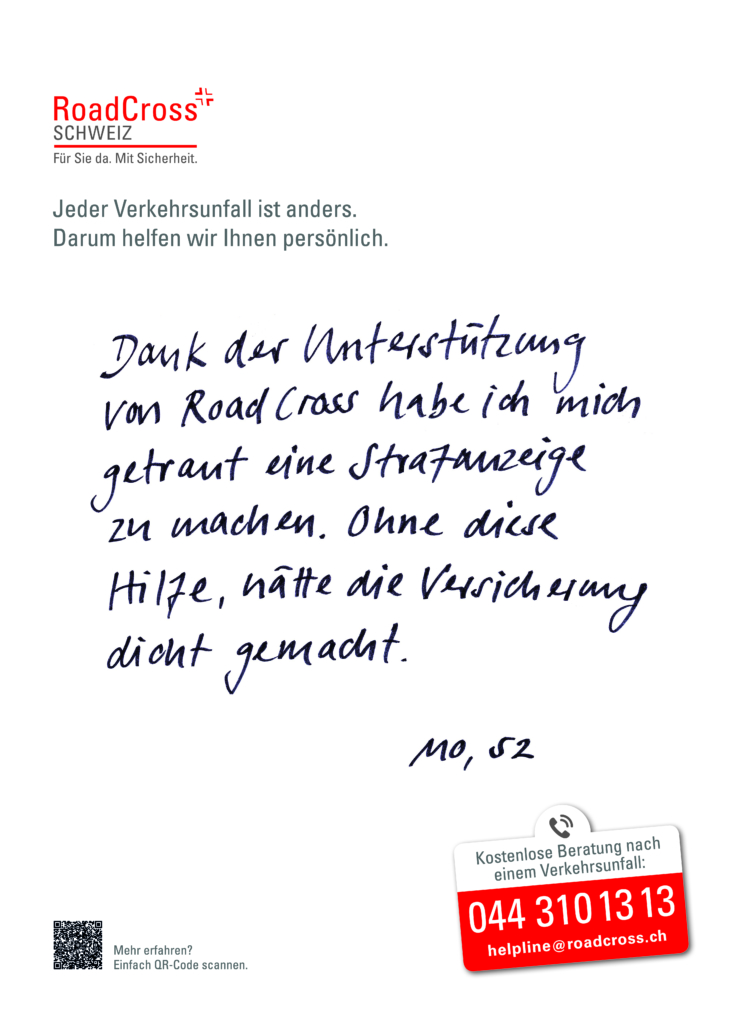 RoadCross
SCHWEIZ
Für Sie da. Mit Sicherheit.
Jeder Verkehrsunfall ist anders.
Darum helfen wir Ihnen persönlich.
Dank der Unterstützung
von RoadCross habe ich mich
getraut eine Strafanzeige
zu machen. Ohne diese
Hilfe, hätte die Versicherung
dicht gemacht.
MO, 52
Kostenlose Beratung nach
einem Verkehrsunfall:
044 310 13 13
helpline@roadcross.ch
Mehr erfahren?
Einfach QR-Code scannen.